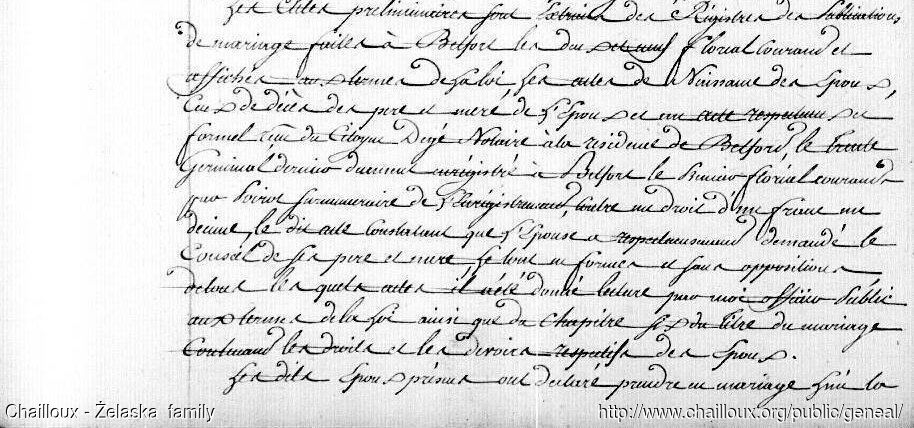 Les actes preliminaires sont Extraits des Régistres des Publications
de mariage faites à Belfort les deux et neuf floréal Courand et
affichés aux termes de la loi les actes de Naissance des Epoux,
Ceux de décès des pere et mere de l'Epoux et un acte respectueux et
formel reçu du Citoyen Notaire à la residence de Belford, le trente
Germinal dernier duement enrégistré à Belfort le Primier floréal courand
par Poirot surnumeraire de l'Enrégistrement, contre un droit d'un franc un
decime, le dit acte Constatant que l'Epouse a respectueusement demandé le
Conseil de ses pere et mere le tout en formes et sans oppositions
de tous les quels actes il a été donné lecture par moi officier Public
aux termes de la loi ainsi que du Chapitre six du titre du mariage
Contenand les droits et les devoirs respectifs des Epoux.
Les dits Epoux présens ont déclaré prendre en mariage l'un la
Chailloux - Żelaska family
http://www.chailloux.org/public/geneal/